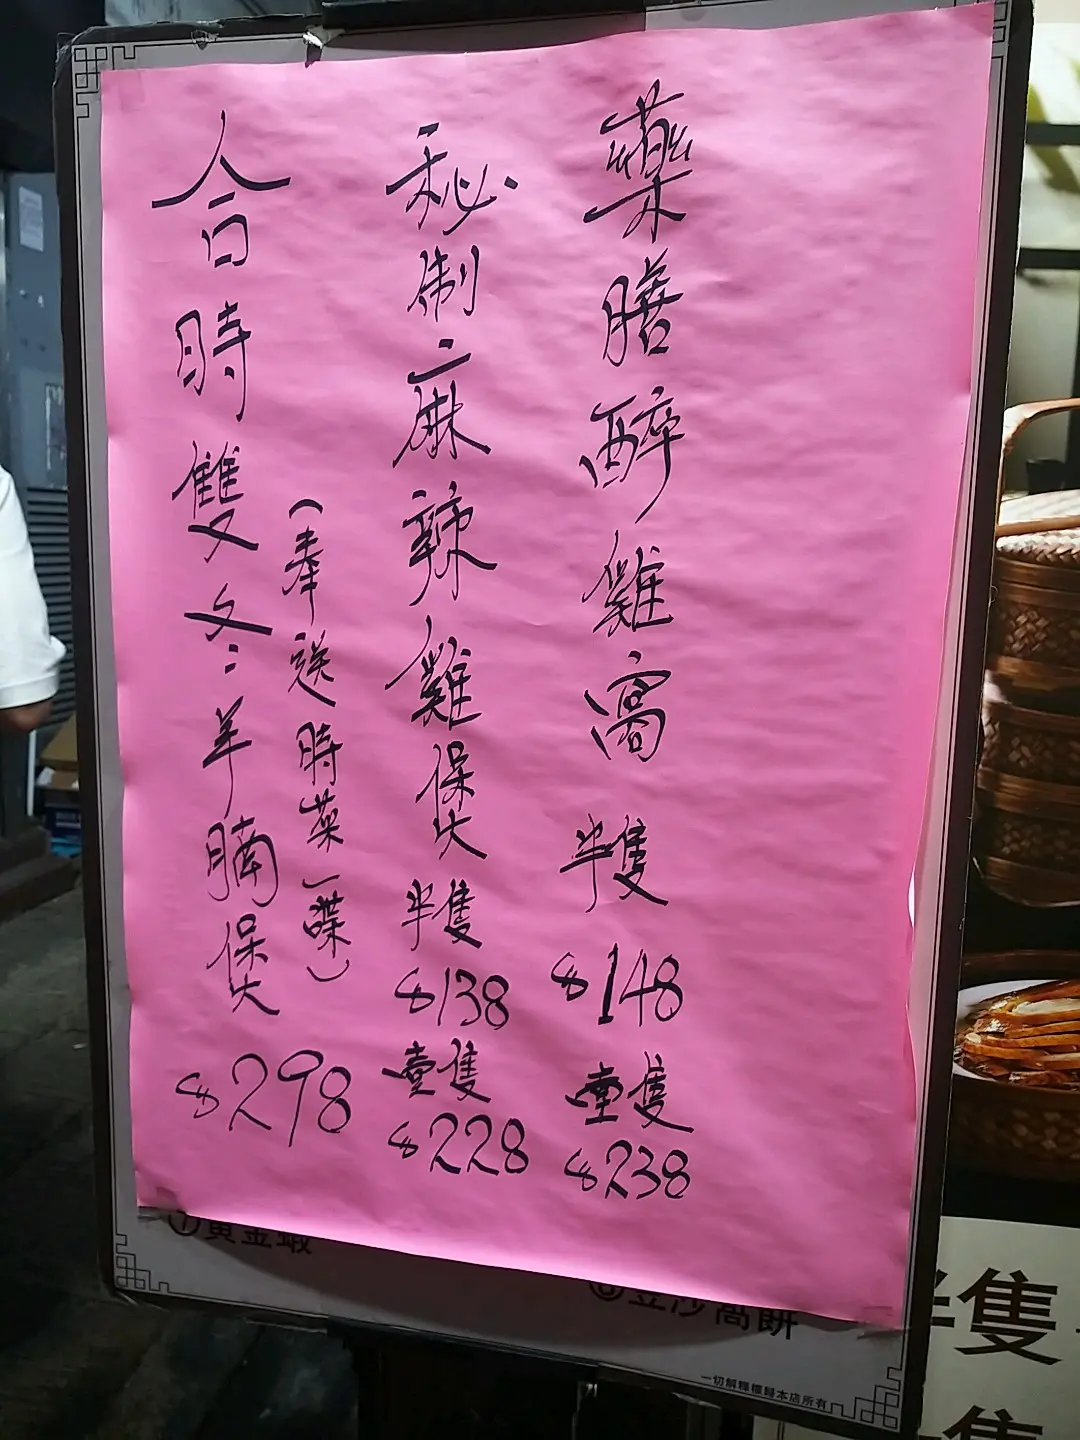 藥膳醉雞窩 半隻 $148 壹隻 $238
秘制麻辣雞煲 半隻 $138 壹隻 $228
合時雙冬羊腩煲 $298
(奉送時菜一碟)
黃金蝦
窩餅
一切解釋權歸本店所有
半隻
隻